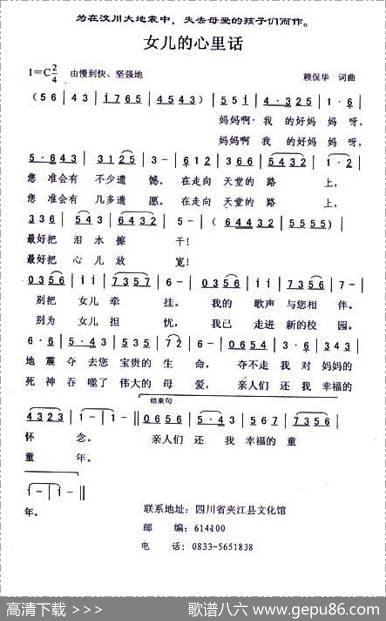 为在汶川大地震中，失去母爱的孩子们而作。
女儿的心里话
1=C 2/4 由慢到快、坚强地
赖保华 词曲
(56 | 43 | i765 | 4543) | 551 | 4·325 | 1·6 |
妈妈啊·我 的好妈 妈 呀，
妈妈啊·我 的好妈 妈 呀，
5·643 | 3125 | 3 - | 6112 | 3266 | 5432 | 1· |
您 准会有 不少遗 憾。 在走向 天堂的 路 上，
您 准会有 几多遗 愿。 在走向 天堂的 路 上，
336 | 543 | 6432 | 5 - | (64432 | 5555) |
最好把 泪 水 擦 干！
最好把 心 儿 放 宽！
0356 | i· | 0356 | i· | 0356 | i7 | 7356 |
别把 女儿 牵 挂。 我的 歌声 与您 相 伴。
别为 女儿 担 忧， 我已 走进 新的 校 园。
6·6 | 5·43 | 0356 | i· | 0653 | 3·6 | 343 |
地 震 夺 去您 宝贵的 生 命， 夺不走 我 对 妈妈的
死 神 吞 噬了 伟大的 母 爱， 亲人们 还 我 幸福的
4323 | 1 - | 1 - ‖ 0656 | 5·43 | 567 | 7356 |
结束句
怀 念。 亲人们 还 我 幸福的 童
童 年。
i - | i - ‖
年。
联系地址：四川省夹江县文化馆
邮 编：614100
电 话：0833-5651838
高清下载 >>>
歌谱八六 www.gepu86.com